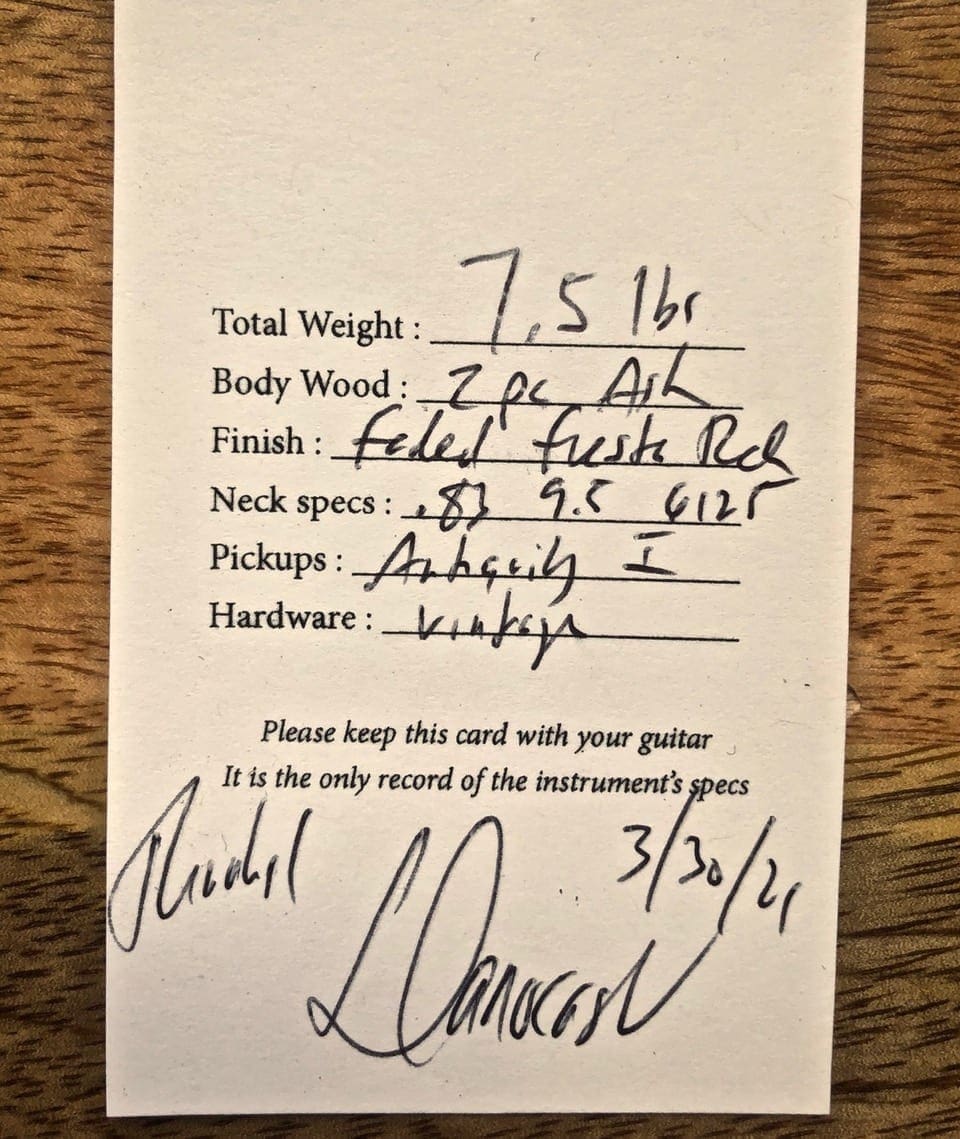 Total Weight : 7.5 lbs
Body Wood : 2 pc Ash
Finish : faded fiesta Red
Neck specs : .83 9.5 6125
Pickups : Antiquity I
Hardware : vintage
Please keep this card with your guitar
It is the only record of the instrument's specs
3/30/21
Danocaster